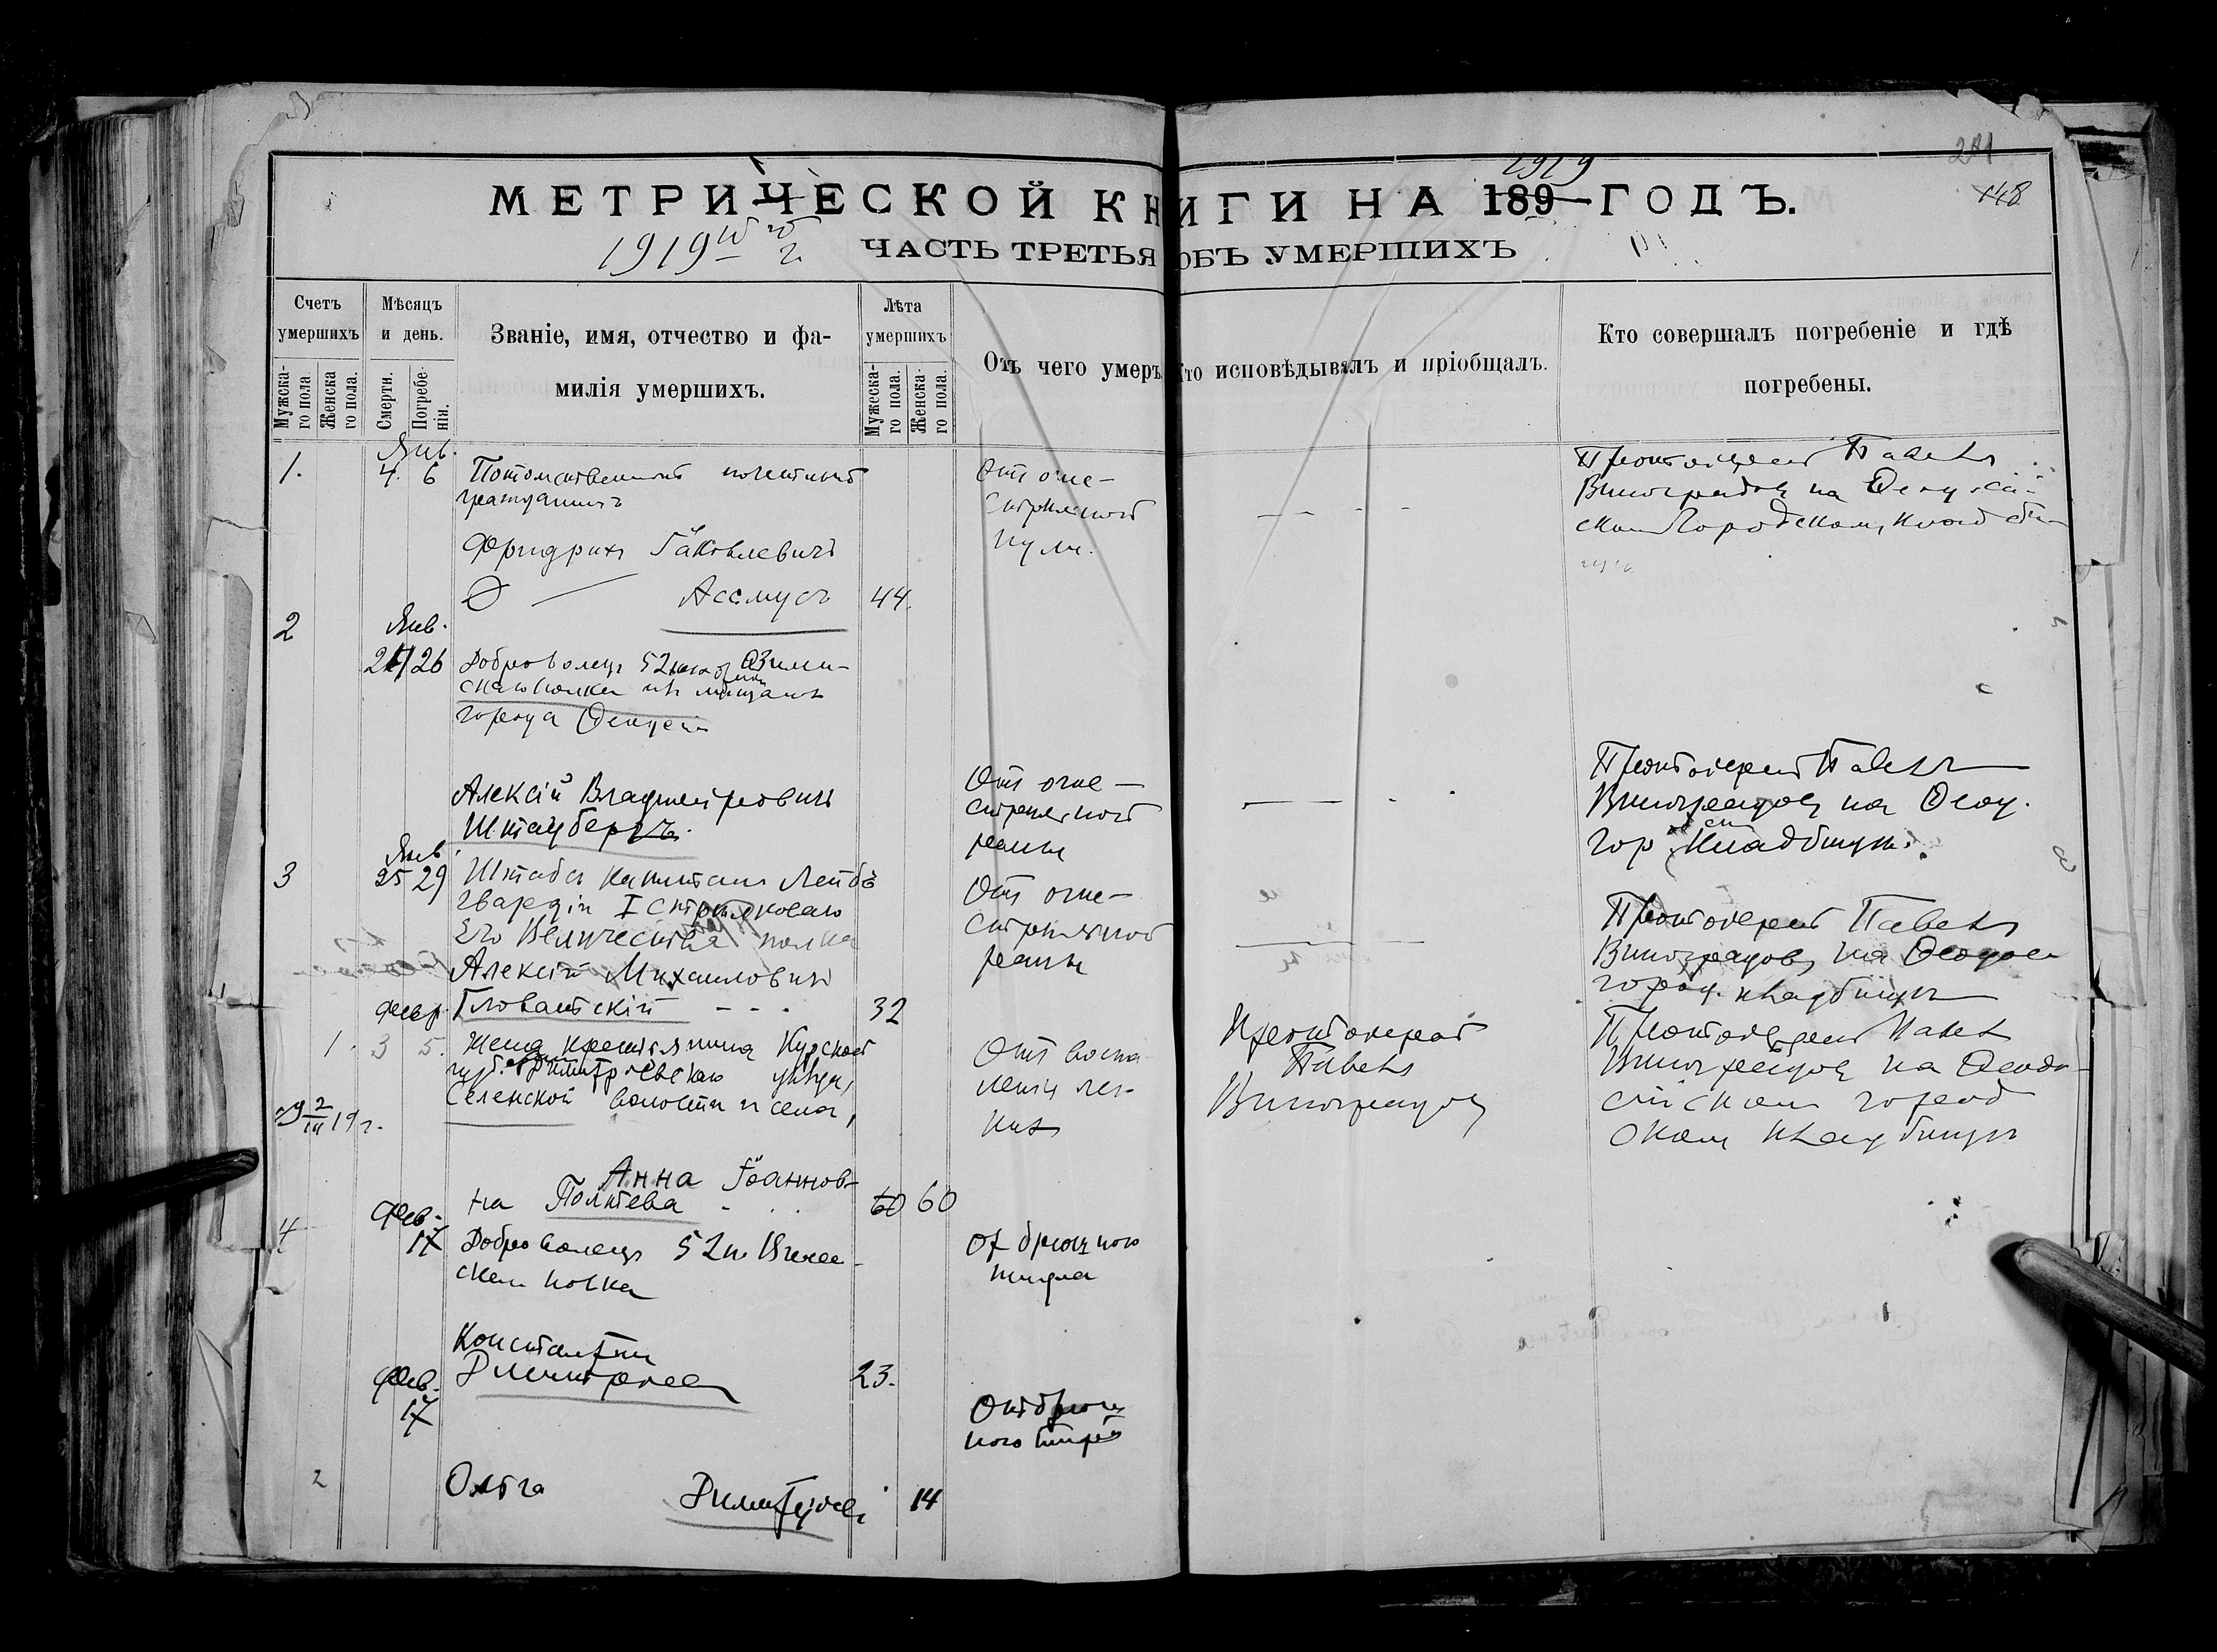 281
148
1919
МЕТРИЧЕСКОЙ КНИГИ НА 189 ГОДЪ.
1919 г.
ЧАСТЬ ТРЕТЬЯ ОБЪ УМЕРШИХЪ
Счетъ умершихъ
Мужеска-го пола.
Женска го пола.
Мѣсяцъ и день.
Смерти.
Погребе-нія.
Званіе, имя, отчество и фа-
милія умершихъ.
Лѣта умершихъ
Мужеска-го пола.
Женска-го пола.
Отъ чего умеръ
Кто исповѣдывалъ и пріобщалъ.
Кто совершалъ погребеніе и гдѣ
погребены.
Янв.
1.
4. 6
Потомственный почетный
гражданинъ
Фридрихъ Іаковлевичъ
Ассмусъ
44.
Отъ огне-
стрѣльной
пули.
Протоіерей Павелъ
Виноградовъ на Ѳеодосій-
скомъ Городскомъ кладби-
Янв.
2
26
Доброволецъ 52
скаго полка изъ мѣщанъ
города Ѳеодосіи
Алексій Владиміровичъ
Штаубергъ.
Отъ огне-
стрѣльной
раны
Протоіерей Павелъ
Виноградовъ на Ѳеод.
Гор. Кладбищѣ.
Янв.
3
25 29
Штабсъ Капитанъ Лейбъ
Гвардіи I Стрѣлковаго
Его Величества полка
Алексій Михаиловичъ
Гловатскій
32
Отъ огне-
стрѣльной
раны
Протоіерей Павелъ
Виноградовъ на Ѳеодос
город. кладбищѣ
Февр.
1. 3 5.
Жена крестьянина Курской
губ. Димитріевскаго уѣзда,
Селенской волости и села,
Анна Іоаннов-
на Полтева
60 60
Отъ воспа
ленія лег-
кихъ
Протоіерей
Павелъ
Виноградовъ
Протоіерей Павелъ
Виноградовъ на Ѳеодо-
сійскомъ город
скомъ кладбищѣ
19 г.
Фев.
4
17
Доброволецъ 52
полка
Константинъ
Димитріевъ
23.
От брюшного
тифа
Фев.
17
2
Ольга
Димитріев
14
От брюш
ного тифа